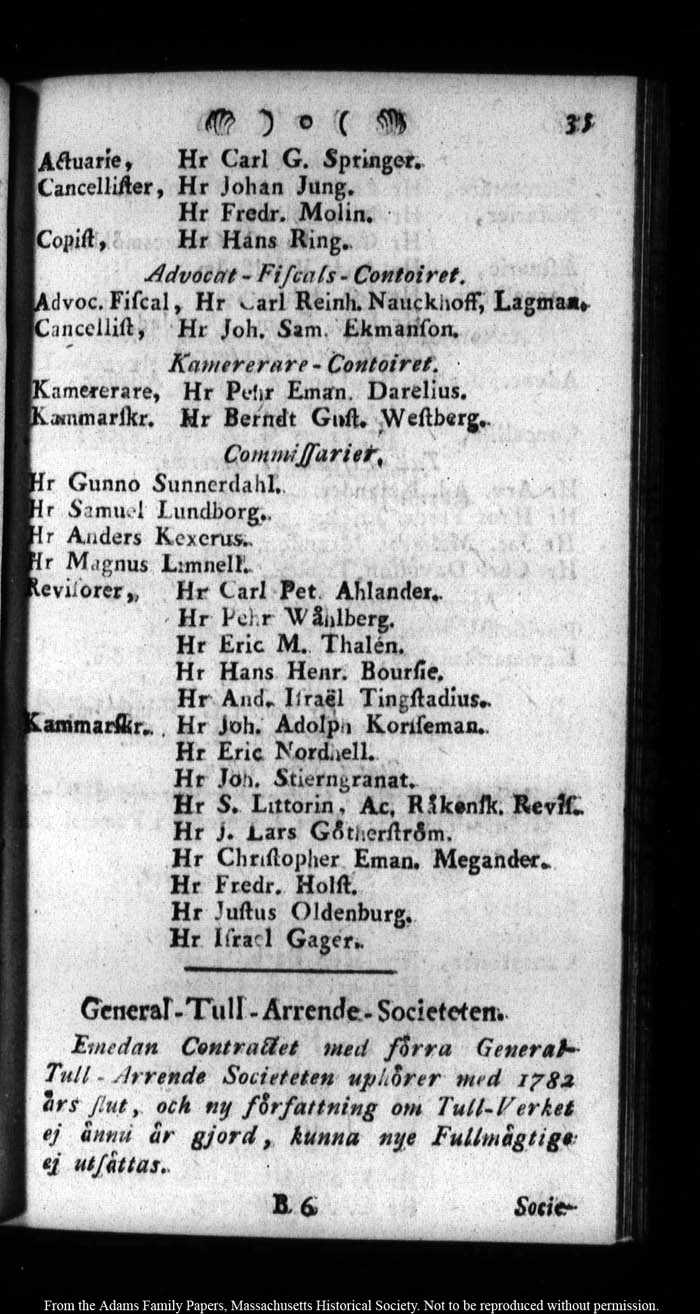 ) o ( 35
Actuarie, Hr Carl G. Springer.
Cancelliſter, Hr Johan Jung.
Hr Fredr. Molin.
Copiſt, Hr Hans Ring.
Advocat-Fiſcals-Contoiret.
Advoc. Fiſcal, Hr Carl Reinh. Nauckhoff, Lagman.
Cancelliſt, Hr Joh. Sam. Ekmanſon.
Kamererare-Contoiret.
Kamererare, Hr Pehr Eman. Darelius.
Kammarſkr. Hr Berndt Guſt. Weſtberg.
Commiſſarier,
Hr Gunno Sunnerdahl.
Hr Samuel Lundborg.
Hr Anders Kexerus.
Hr Magnus Limnell.
Reviſorer, Hr Carl Pet. Ahlander.
Hr Pehr Wåhlberg.
Hr Eric M. Thalén.
Hr Hans Henr. Bourſie.
Hr And. Iſraël Tingſtadius.
Kammarſkr. Hr Joh. Adolph Korſſeman.
Hr Eric Nordnell.
Hr Joh. Stierngranat.
Hr S. Littorin, Ac, Råkenſk. Reviſ.
Hr J. Lars Götherſtröm.
Hr Chriſtopher Eman. Megander.
Hr Fredr. Holſt.
Hr Juſtus Oldenburg.
Hr Iſrael Gager.
General-Tull-Arrende-Societeten.
Emedan Contractet med förra General-
Tull-Arrende Societeten uphörer med 1782
års ſlut, och ny författning om Tull-Verket
ej ännu är gjord, kunna nye Fullmägtige
ej utſättas.
B 6 Socie-
From the Adams Family Papers, Massachusetts Historical Society. Not to be reproduced without permission.